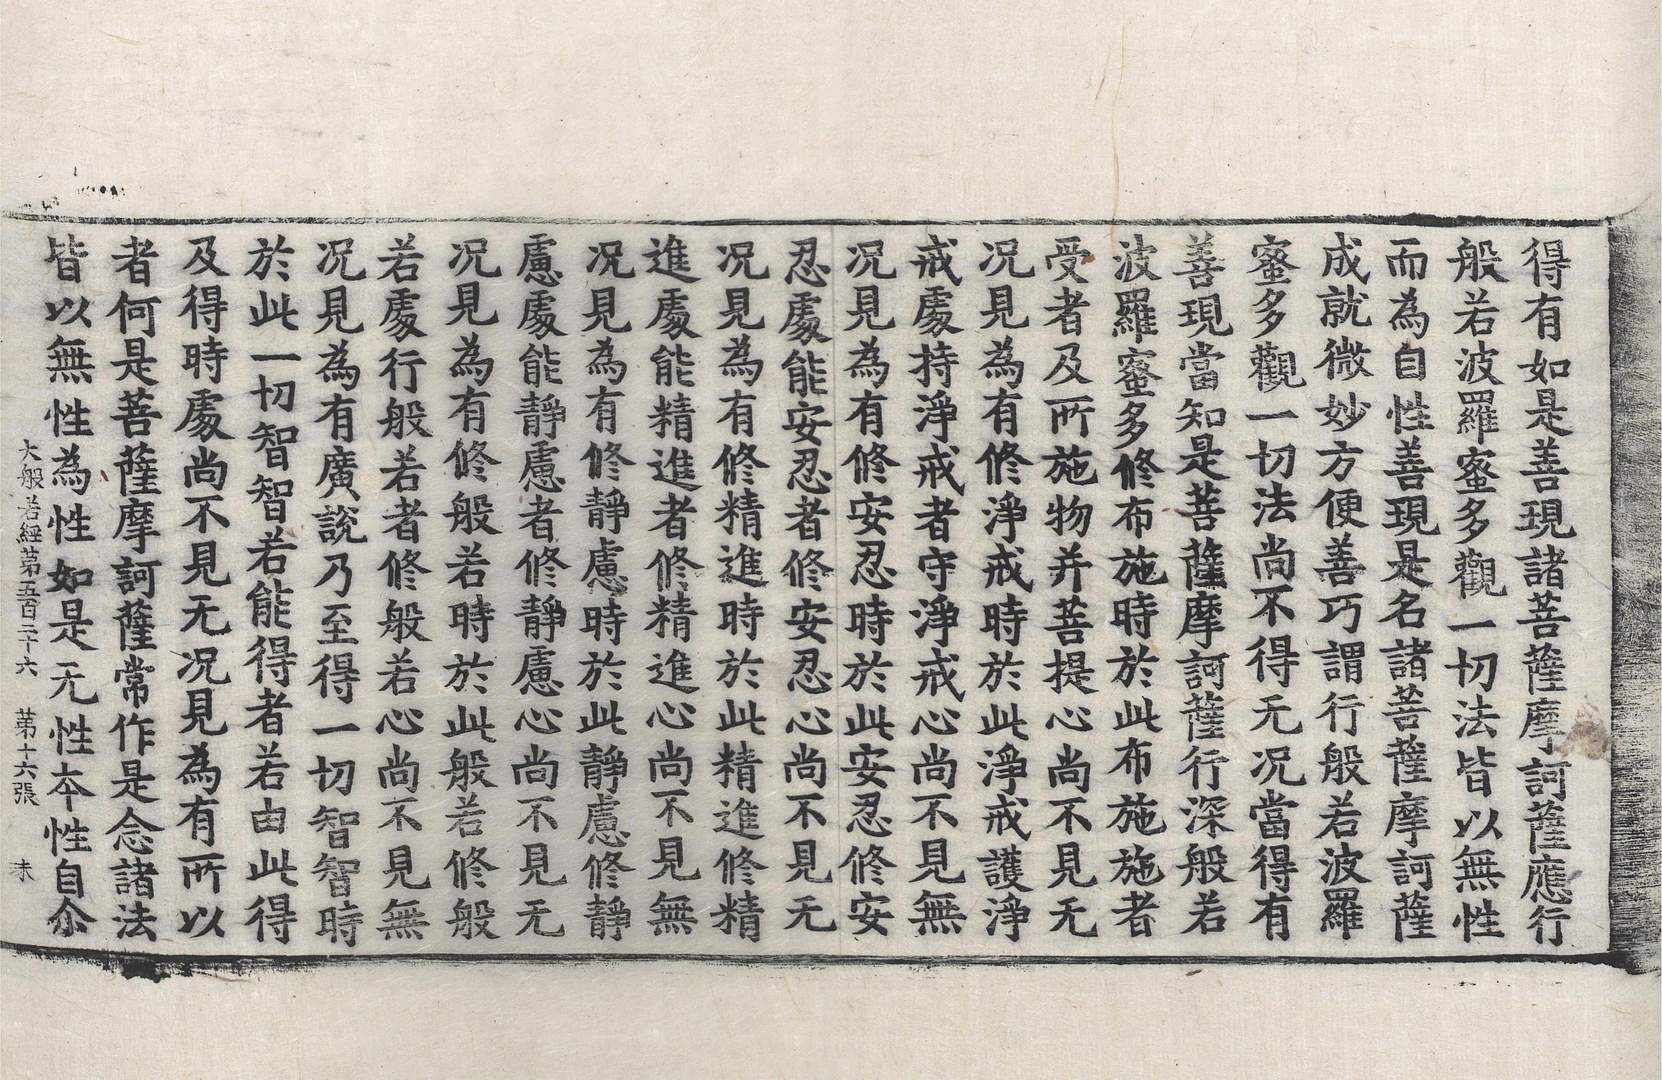 得有如是善現諸菩薩摩訶薩應行
般若波羅蜜多觀一切法皆以無性
而為自性善現是名諸菩薩摩訶薩
成就微妙方便善巧謂行般若波羅
蜜多觀一切法尚不得无况當得有
善現當知是菩薩摩訶薩行深般若
波羅蜜多修布施時於此布施施者
受者及所施物并菩提心尚不見无
况見為有修淨戒時於此淨戒護淨
戒處持淨戒者守淨戒心尚不見無
况見為有修安忍時於此安忍修安
忍處能安忍者修安忍心尚不見无
况見為有修精進時於此精進修精
進處能精進者修精進心尚不見無
况見為有修靜慮時於此靜慮修靜
慮處能靜慮者修靜慮心尚不見无
况見為有修般若時於此般若修般
若處行般若者修般若心尚不見無
况見為有廣說乃至得一切智智時
於此一切智智若能得者若由此得
及得時處尚不見无况見為有所以
者何是菩薩摩訶薩常作是念諸法
皆以無性為性如是无性本性自尒
大般若經第五百二十六 第十六張 末